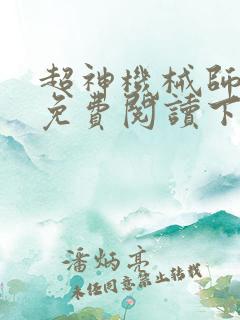 超神機械師
免費閱讀下
潘炳亮
未任同意禁止转载